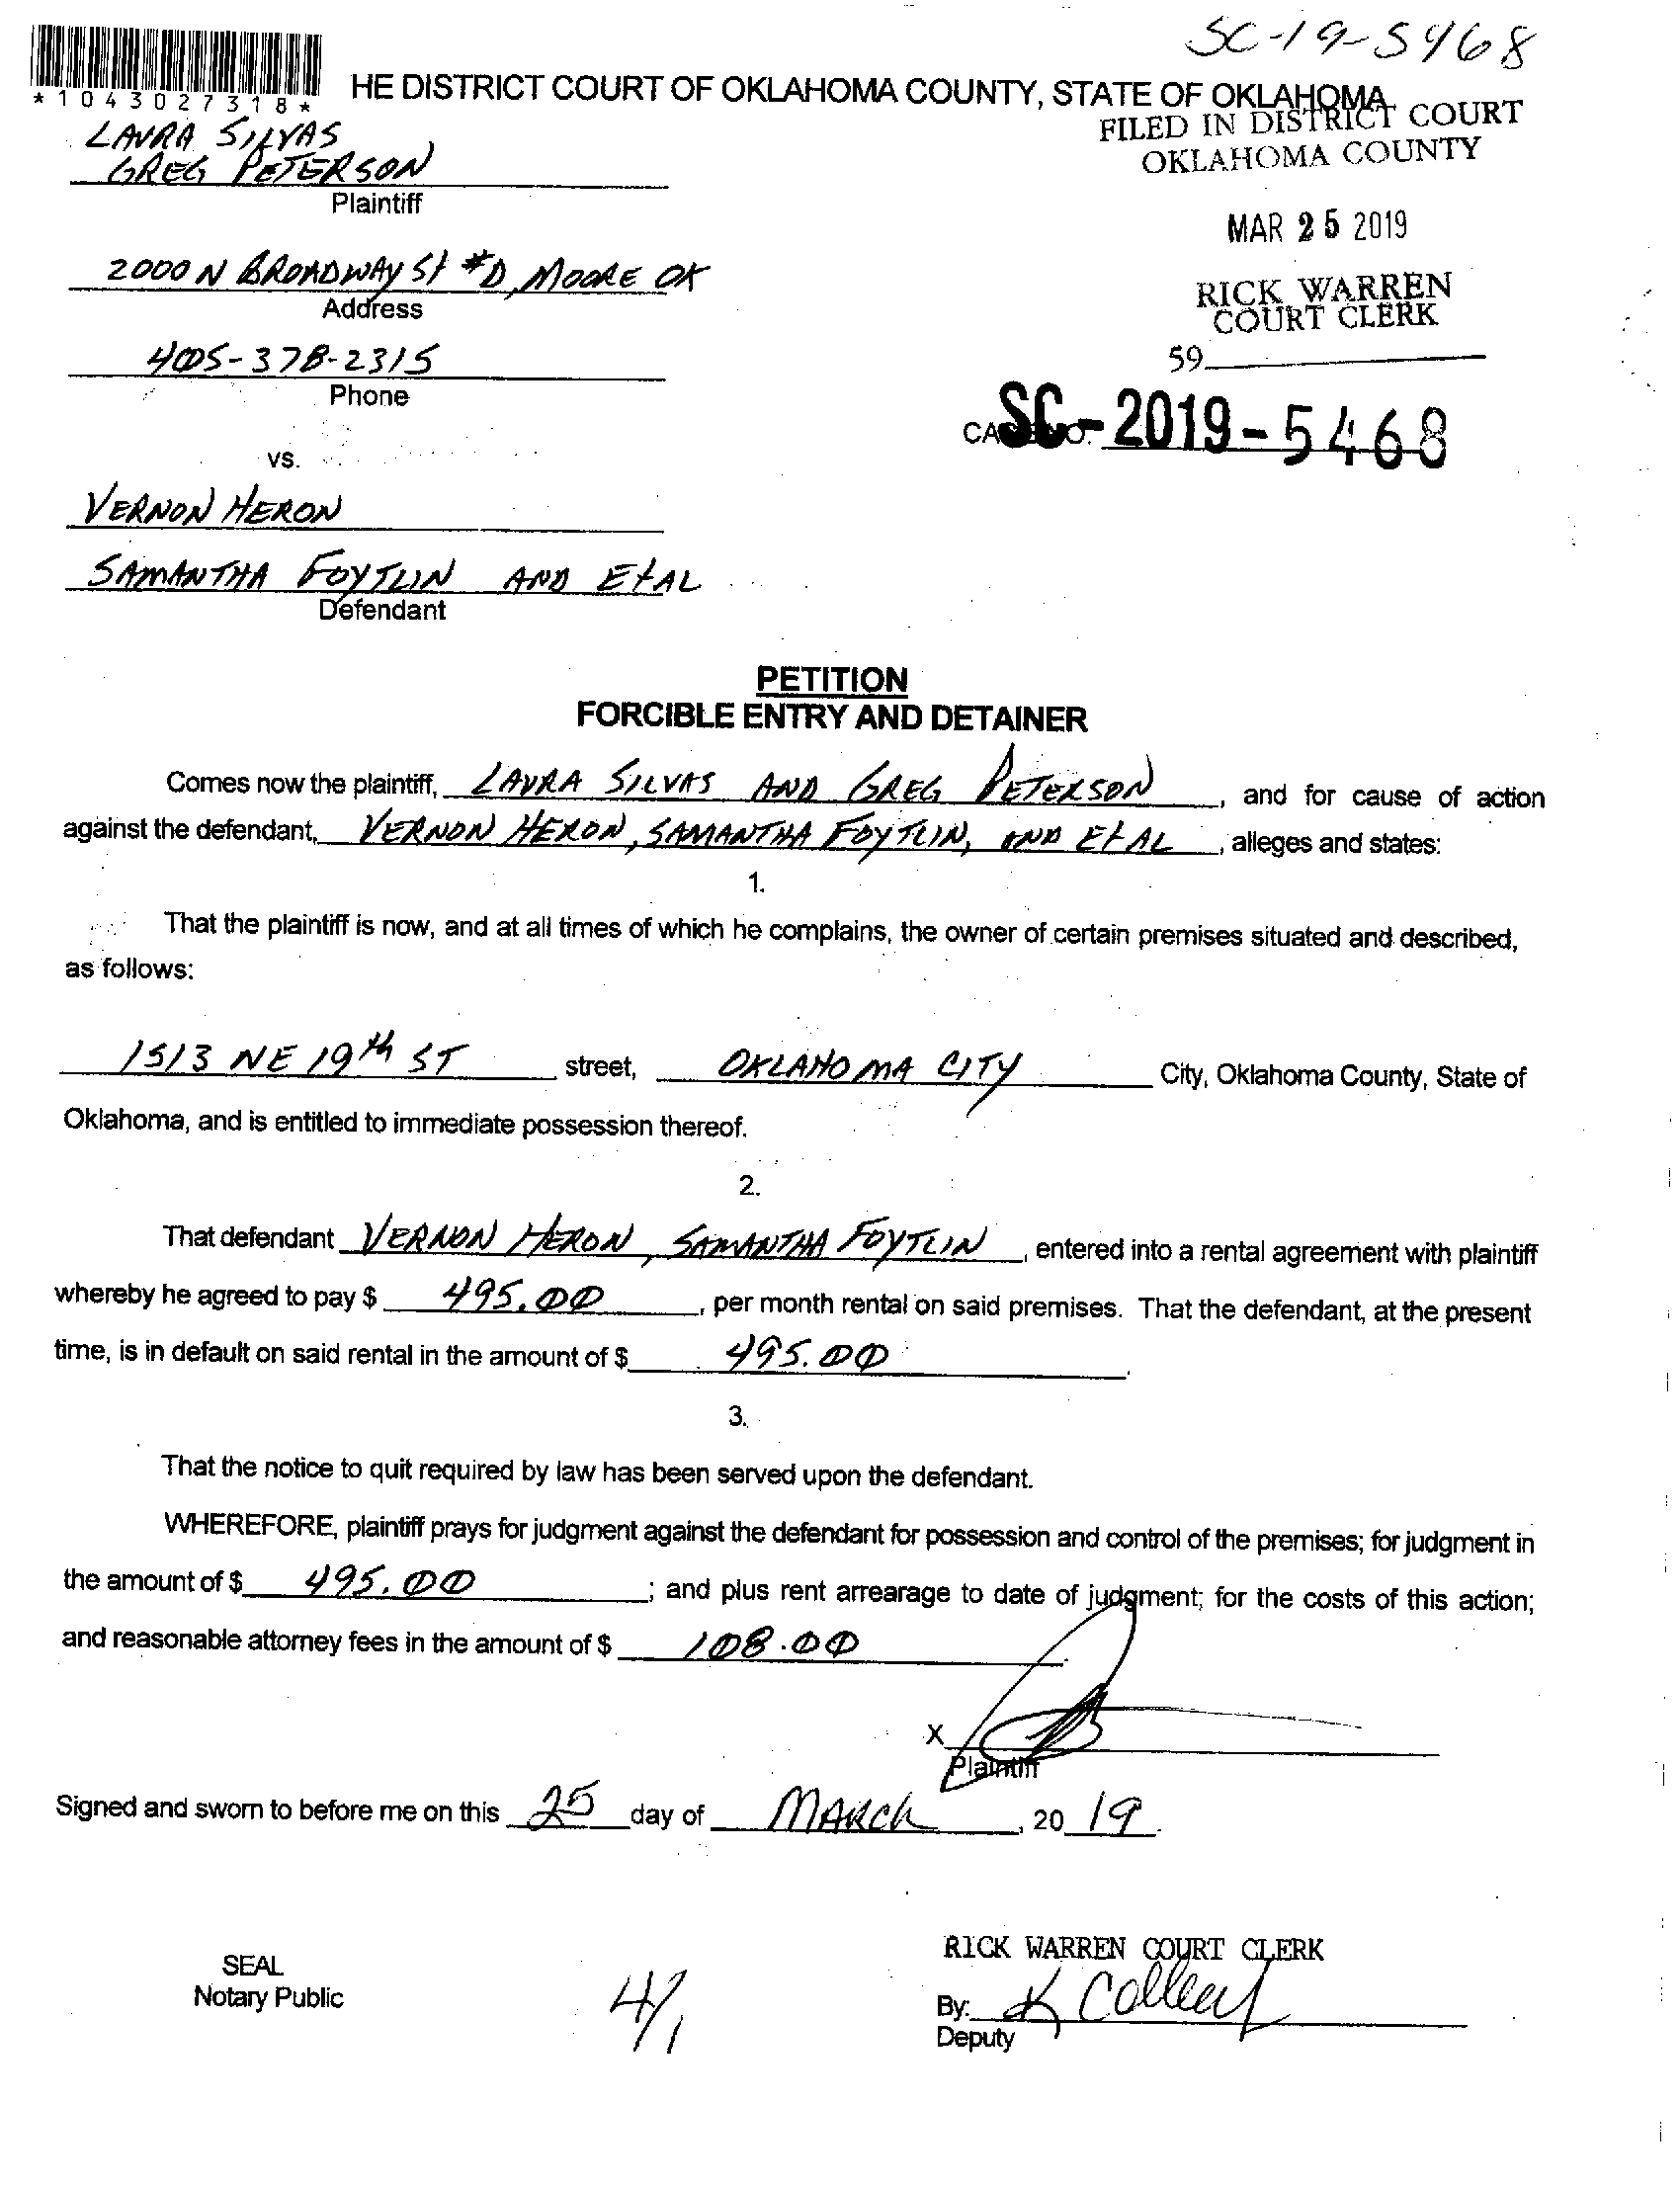 SC-19-5468
*1043027318*
HE DISTRICT COURT OF OKLAHOMA COUNTY, STATE OF OKLAHOMA
FILED IN DISTRICT COURT
OKLAHOMA COUNTY
LAURA SILVAS
GREG PETERSON
Plaintiff
MAR 25 2019
2000 N BROADWAY St #D, MOORE OK
Address
RICK WARREN
COURT CLERK
405-378-2315
Phone
59
CASE NO. SC-2019-5468
vs.
VERNON HERON
SAMANTHA FOYTLIN AND EtAL
Defendant
PETITION
FORCIBLE ENTRY AND DETAINER
Comes now the plaintiff, LAURA SILVAS AND GREG PETERSON, and for cause of action
against the defendant, VERNON HERON, SAMANTHA FOYTLIN, AND EtAL, alleges and states:
1.
That the plaintiff is now, and at all times of which he complains, the owner of certain premises situated and described,
as follows:
1513 NE 19th ST street, OKLAHOMA CITY City, Oklahoma County, State of
Oklahoma, and is entitled to immediate possession thereof.
2.
That defendant VERNON HERON, SAMANTHA FOYTLIN, entered into a rental agreement with plaintiff
whereby he agreed to pay $ 495.00, per month rental on said premises. That the defendant, at the present
time, is in default on said rental in the amount of $ 495.00.
3.
That the notice to quit required by law has been served upon the defendant.
WHEREFORE, plaintiff prays for judgment against the defendant for possession and control of the premises; for judgment in
the amount of $ 495.00; and plus rent arrearage to date of judgment; for the costs of this action;
and reasonable attorney fees in the amount of $ 108.00.
X
Plaintiff
Signed and sworn to before me on this 25 day of MARCH, 20 19.
RICK WARREN COURT CLERK
SEAL
Notary Public
4/1
By: K
Deputy